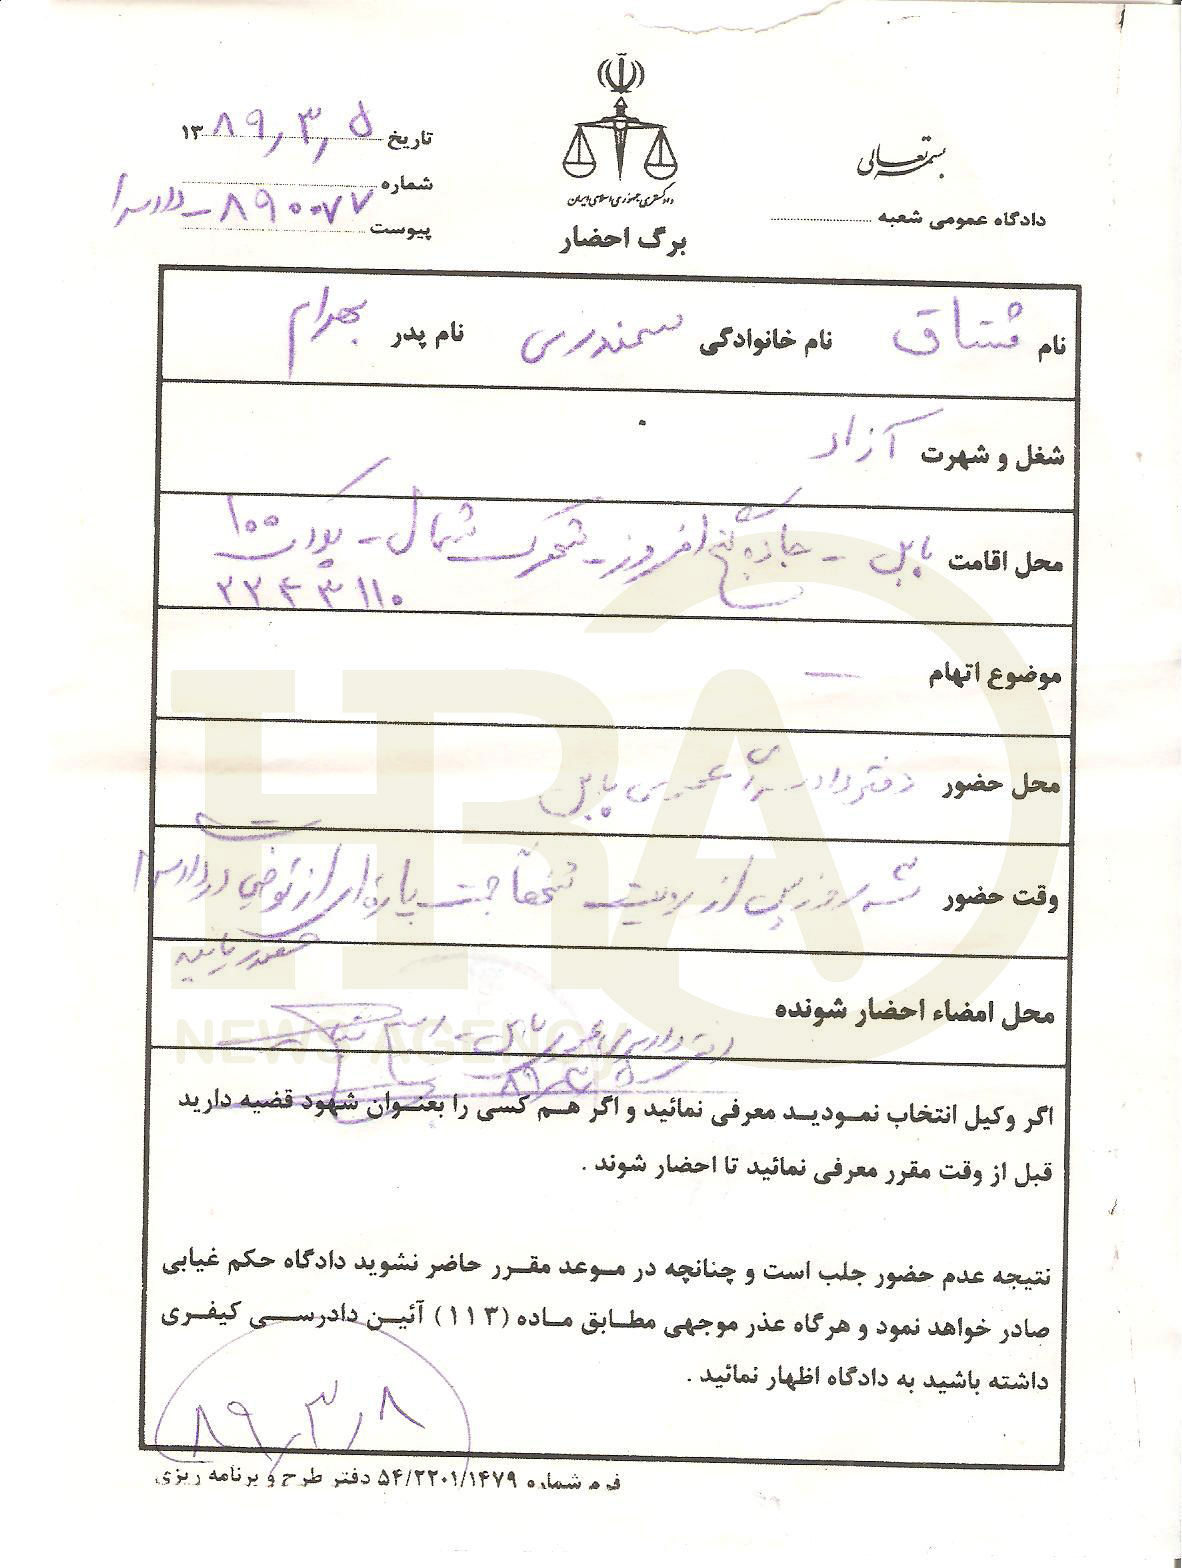 بسمه تعالی
دادگستری جمهوری اسلامی ایران
تاریخ ۱۳۸۹/۳/۵
شماره ۸۹۰۰۷۷ - دادسرا
پیوست
دادگاه عمومی شعبه
برگ احضار
نام مشتاق نام خانوادگی سمندری نام پدر بهرام
شغل و شهرت آزاد
محل اقامت بابل - جاده گنج افروز - شهرک شمال - پلاک ۱۰۰
۲۲۴۳۱۱۰
موضوع اتهام —
محل حضور دفتر دادسرای عمومی بابل
وقت حضور سه روز پس از رویت شخصاً جهت پاره ای از توضیحات در دادسرا
حضور یابید
محل امضاء احضار شونده
دفتر دادسرای عمومی بابل
اگر وکیل انتخاب نمودید معرفی نمائید و اگر هم کسی را بعنوان شهود قضیه دارید
قبل از وقت مقرر معرفی نمائید تا احضار شوند .
نتیجه عدم حضور جلب است و چنانچه در موعد مقرر حاضر نشوید دادگاه حکم غیابی
صادر خواهد نمود و هرگاه عذر موجهی مطابق ماده (۱۱۳) آئین دادرسی کیفری
داشته باشید به دادگاه اظهار نمائید .
۸۹/۳/۸
فرم شماره ۵۴/۲۲۰۱/۱۴۷۹ دفتر طرح و برنامه ریزی
HRA
NEWS AGENCY